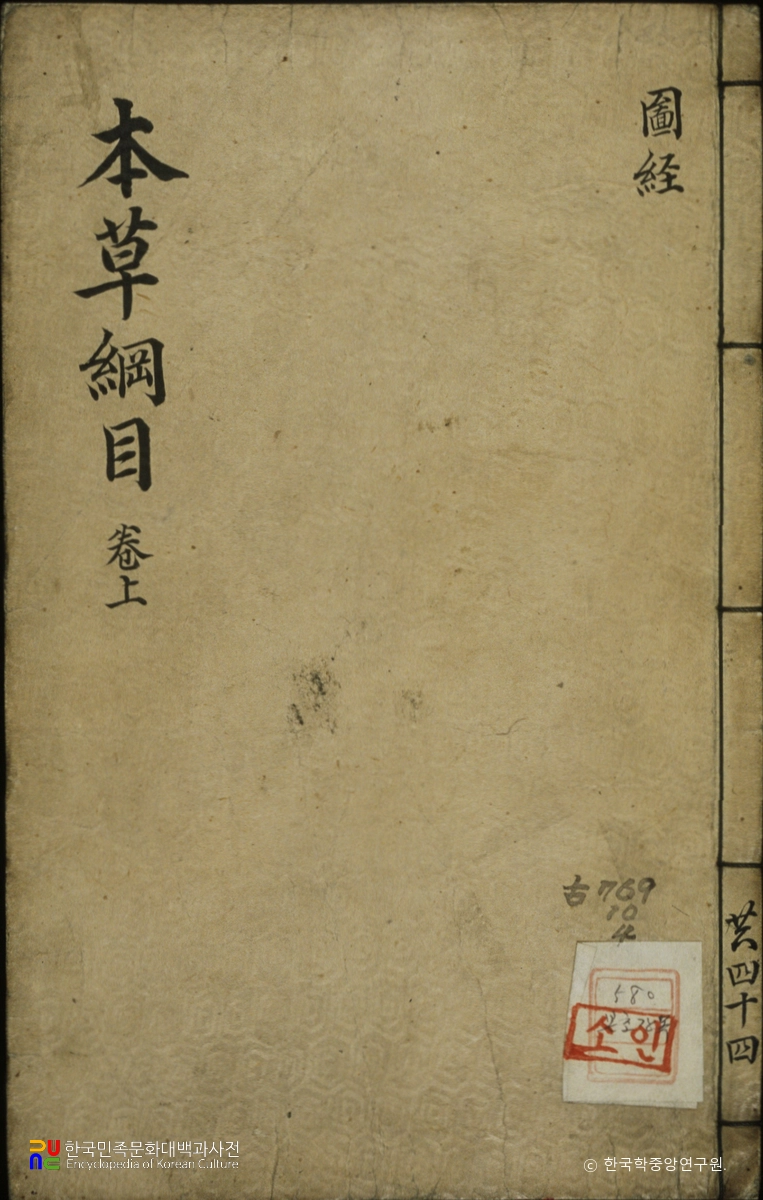 圖経
本草綱目 卷上
共四十四
古769
10
4
580
소인
한국민족문화대백과사전
Encyclopedia of Korean Culture
ⓒ 한국학중앙연구원